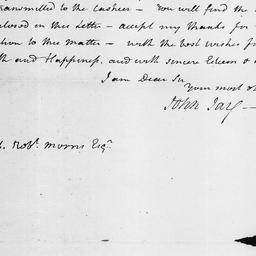 transmitted to the Cashier — You will find the
closed in this Letter — accept my thanks for
tion to this matter — with the best wishes for
th and Happiness, and with sincere Esteem &
I am Dear Sir
Your most ob
John Jay —
Robt. Morris Esqr.